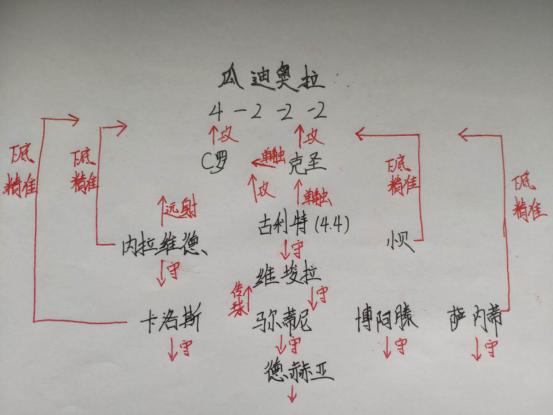 瓜迪奥拉
4-2-2-2
攻 攻
下底精准 下底精准 C罗 单触 克圣 下底精准 下底精准
攻 单触
远射 古利特(4.4)
内拉维德 守 小贝
守 维埃拉
传球 守
卡洛斯 马尔蒂尼 博阿滕 萨内蒂
守 守 守 守
德赫亚